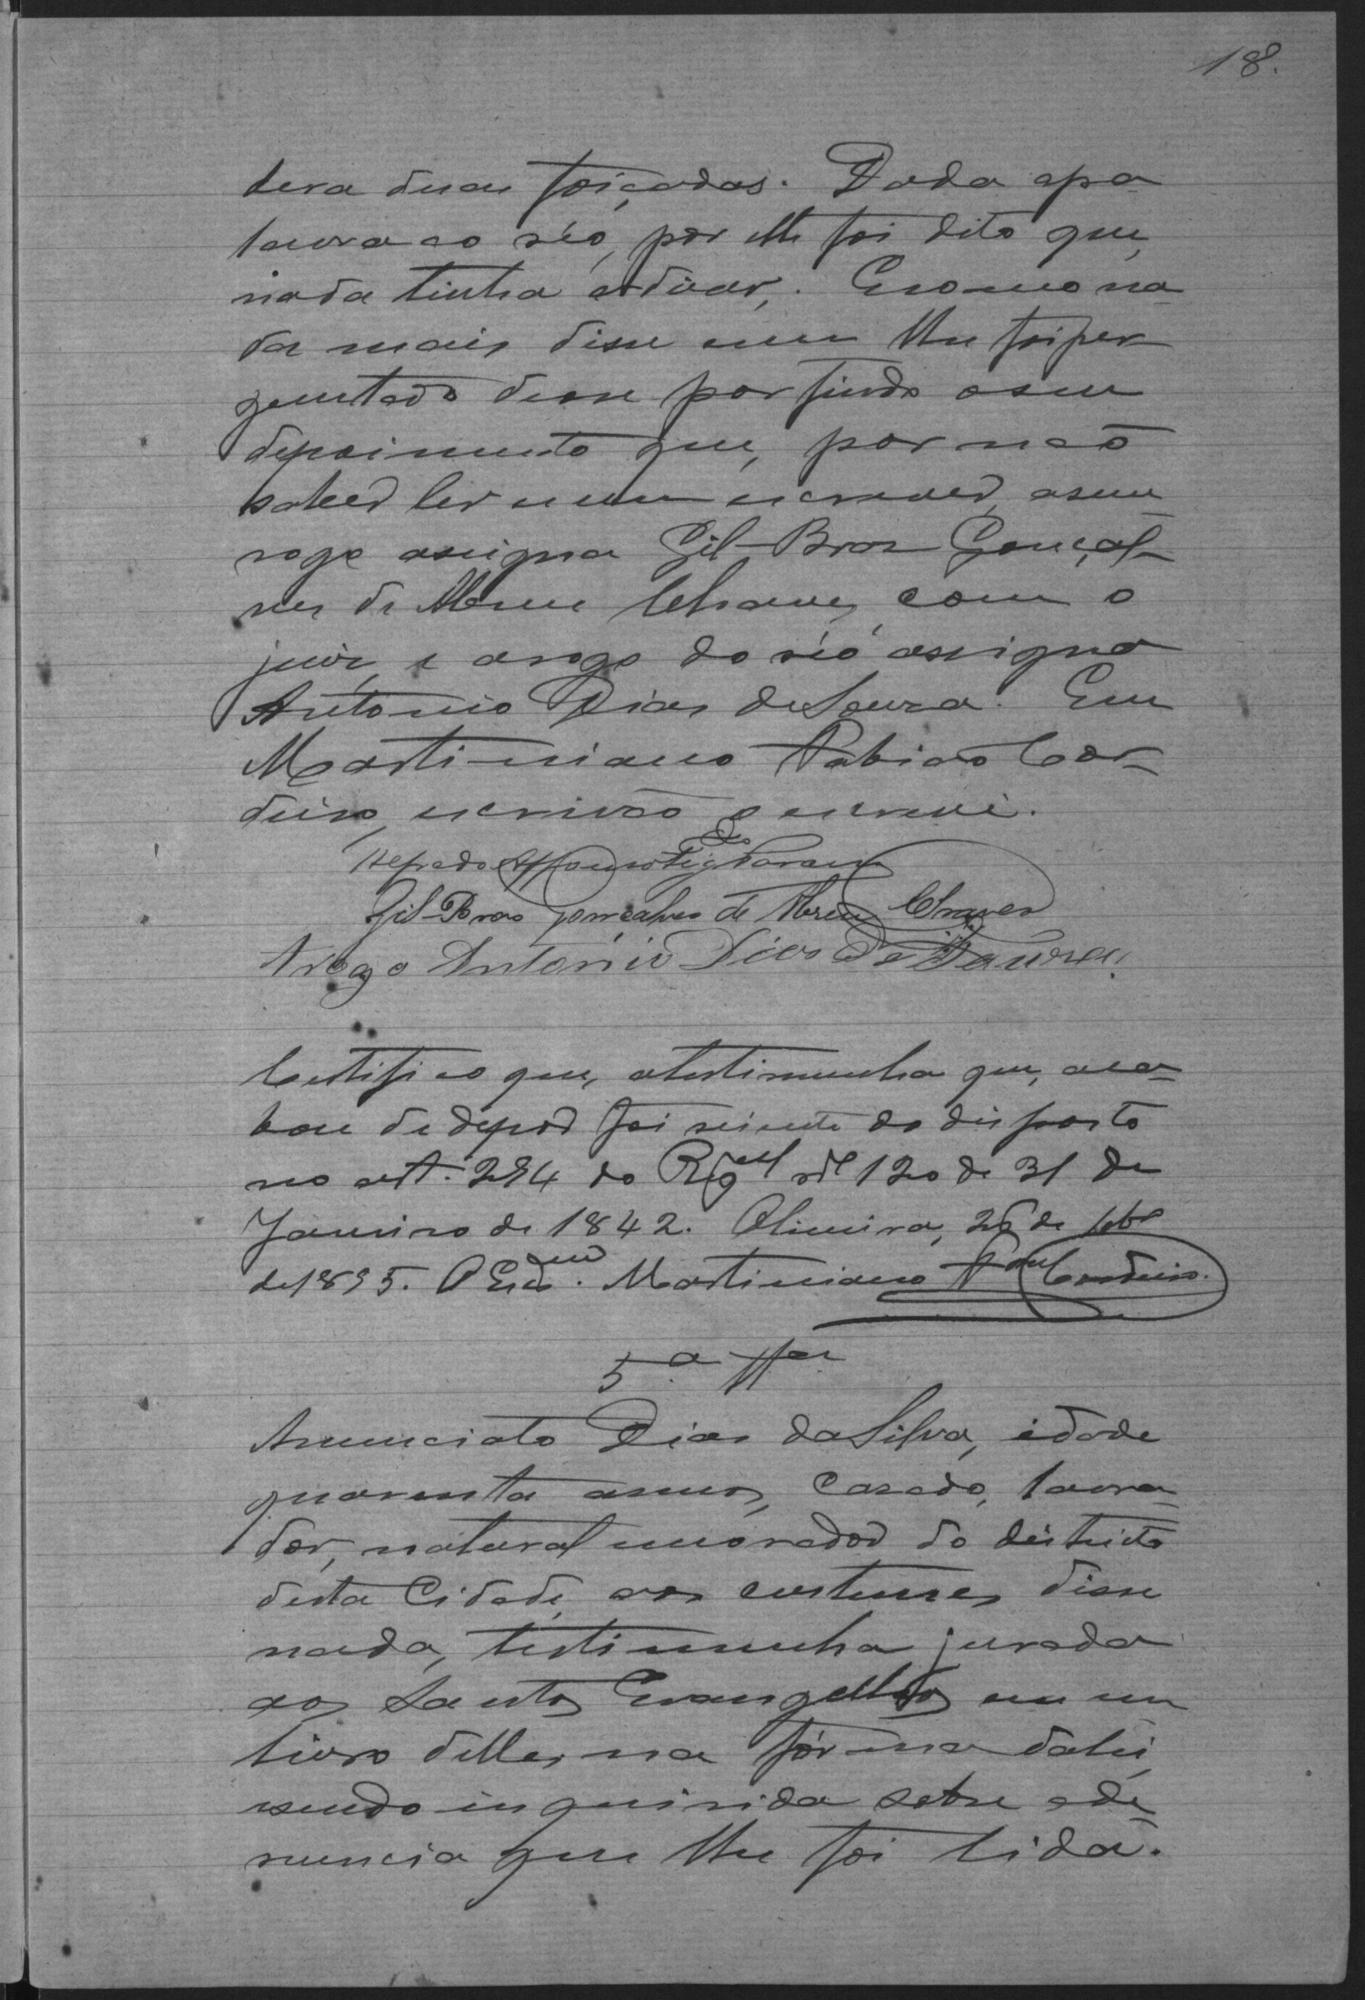 18.
dera duas foiçadas. Dada apa
lavra ao réo, por elle foi dito que,
nada tinha adizer. E como na
da mais disse nem lhe foi per
guntado deose por findo o seu
depoimento que, por não
saber ler nem escrever, a seu
rogo assigna Gil-Braz Gonçal-
ves de Abreu Chaves, com o
juiz, e a rogo do réo assigna
Antonio Dias de Souza. Eu
Martiniano Fabiao Cor-
deiro, escrivão o escrevi.
Alfredo
Gil-Braz Gonçalves de Abreu Chaves
Arogo Antonio Dias de Souza
Certifico que, atestimunha que, aca-
bou de depor foi sciente do disposto
no art. 294 do Reg nº 120 de 31 de
Janeiro de 1842. Oliveira, 26 de 7bro
de 1895. O Escram. Martiniano Fam Cordeiro.
5.a Tta
Anunciato Dias da Silva, idade
quarenta annos, casado, lavra-
dor, natural e morador do districto
desta Cidade, aos custumes disse
nada, testimunha jurada
aos Santos Evangelhos em um
livro delles na forma dalei,
sendo inquirida sobre ade-
nuncia que lhe foi lida.